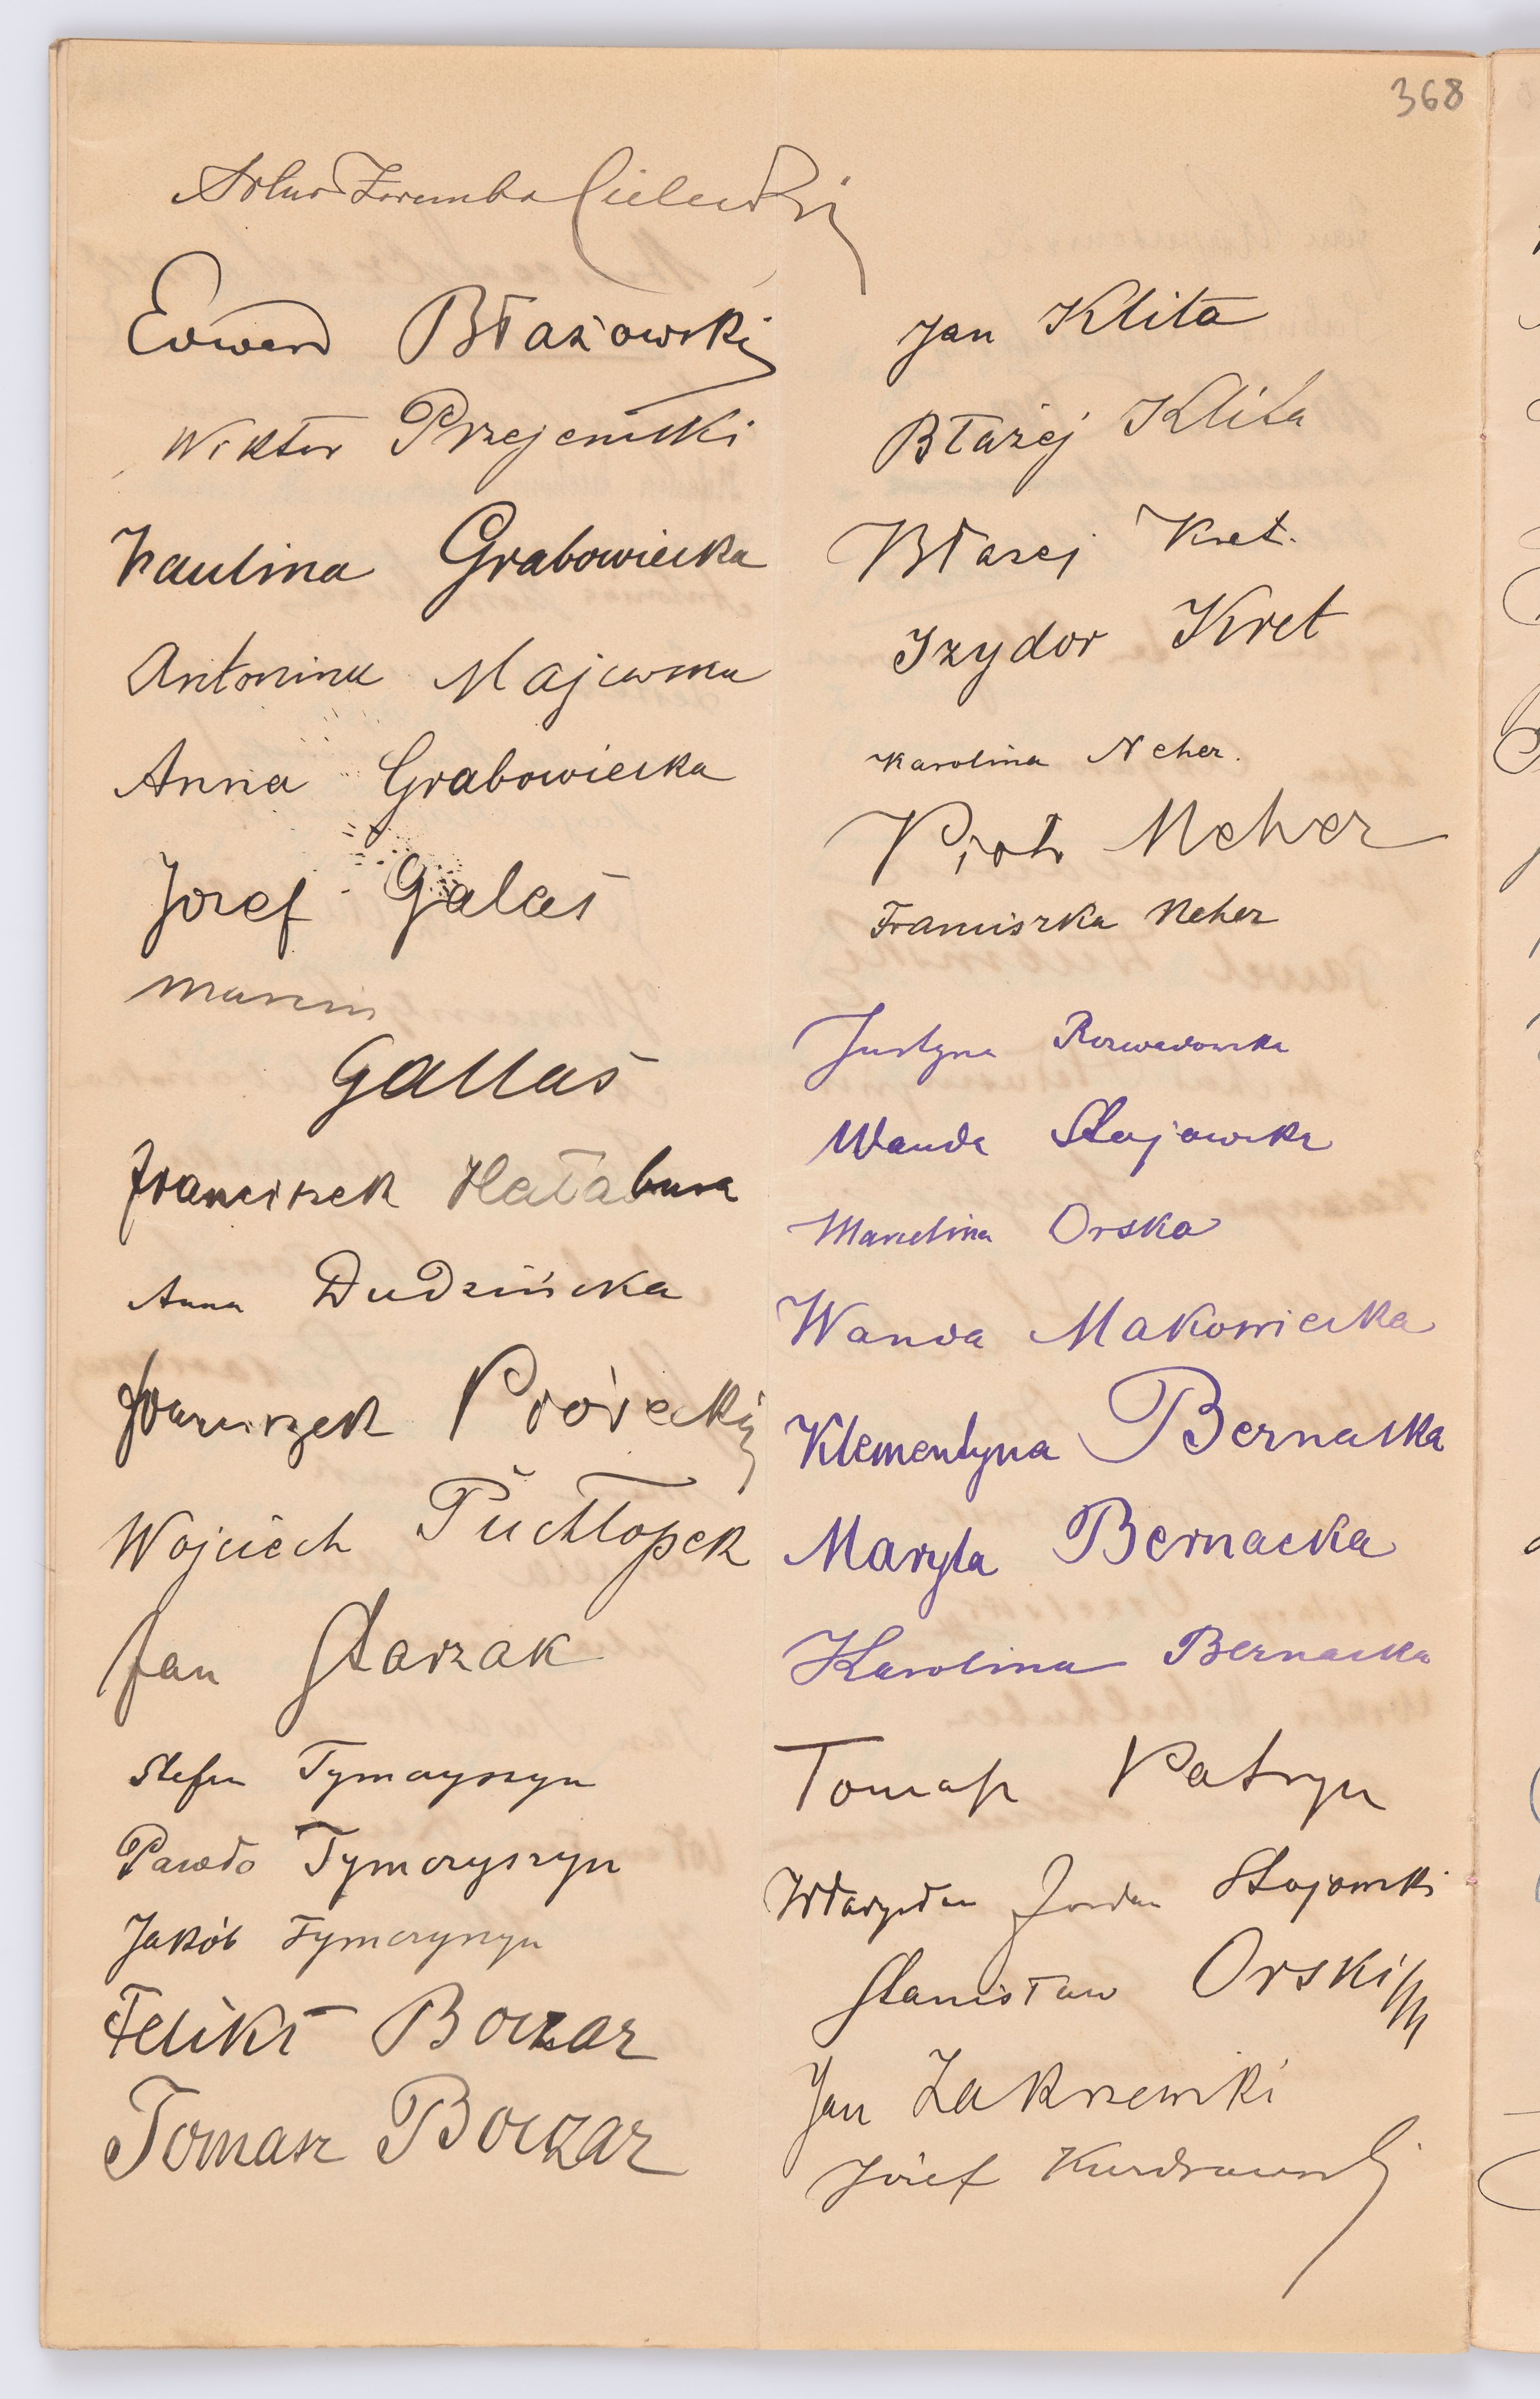 368
Artur Zaremba Cielecki
Edward Błażowski
Wiktor Przejemski
Paulina Grabowiecka
Antonina Majewska
Anna Grabowiecka
Jozef Galaś
Marcin
Gallaś
Franciszek Hałabura
Anna Dudzińska
Franciszek Prórecki
Wojciech Puchłopek
Jan Starzak
Stefan Tymczyszyn
Pawło Tymczyszyn
Jakób Tymczyszyn
Feliks Boczar
Tomasz Boczar
Jan Klita
Błażej Klita
Błazej Kret.
Izydor Kret
Karolina Neher.
Piotr Neher
Franciszka Neher
Justyna Rozwadowska
Wanda Stojowska
Marcelina Orska
Wanda Makowiecka
Klementyna Bernacka
Maryla Bernacka
Karolina Bernacka
Tomasz Patryn
Władysław Jordan Stojowski
Stanisław Orski
Jan Zakrzewski
Józef